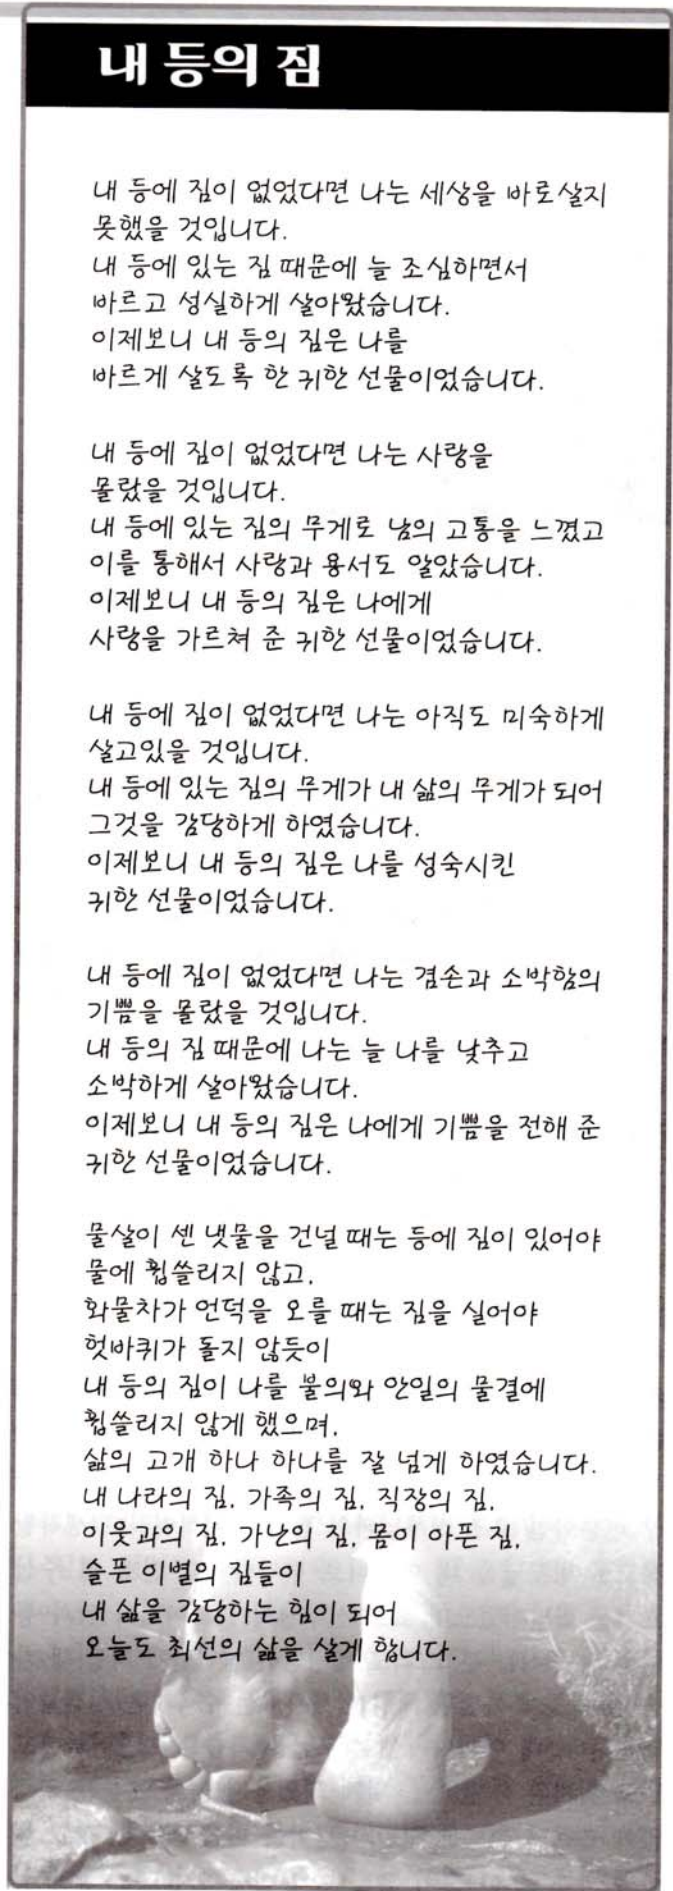 내 등의 짐
내 등에 짐이 없었다면 나는 세상을 바로살지
못했을 것입니다.
내 등에 있는 짐 때문에 늘 조심하면서
바르고 성실하게 살아왔습니다.
이제보니 내 등의 짐은 나를
바르게 살도록 한 귀한 선물이었습니다.
내 등에 짐이 없었다면 나는 사랑을
몰랐을 것입니다.
내 등에 있는 짐의 무게로 남의 고통을 느꼈고
이를 통해서 사랑과 용서도 알았습니다.
이제보니 내 등의 짐은 나에게
사랑을 가르쳐 준 귀한 선물이었습니다.
내 등에 짐이 없었다면 나는 아직도 미숙하게
살고있을 것입니다.
내 등에 있는 짐의 무게가 내 삶의 무게가 되어
그것을 감당하게 하였습니다.
이제보니 내 등의 짐은 나를 성숙시킨
귀한 선물이었습니다.
내 등에 짐이 없었다면 나는 겸손과 소박함의
기쁨을 몰랐을 것입니다.
내 등의 짐 때문에 나는 늘 나를 낮추고
소박하게 살아왔습니다.
이제보니 내 등의 짐은 나에게 기쁨을 전해 준
귀한 선물이었습니다.
물살이 센 냇물을 건널 때는 등에 짐이 있어야
물에 휩쓸리지 않고,
화물차가 언덕을 오를 때는 짐을 실어야
헛바퀴가 돌지 않듯이
내 등의 짐이 나를 불의와 안일의 물결에
휩쓸리지 않게 했으며,
삶의 고개 하나 하나를 잘 넘게 하였습니다.
내 나라의 짐, 가족의 짐, 직장의 짐,
이웃과의 짐, 가난의 짐, 몸이 아픈 짐,
슬픈 이별의 짐들이
내 삶을 감당하는 힘이 되어
오늘도 최선의 삶을 살게 합니다.